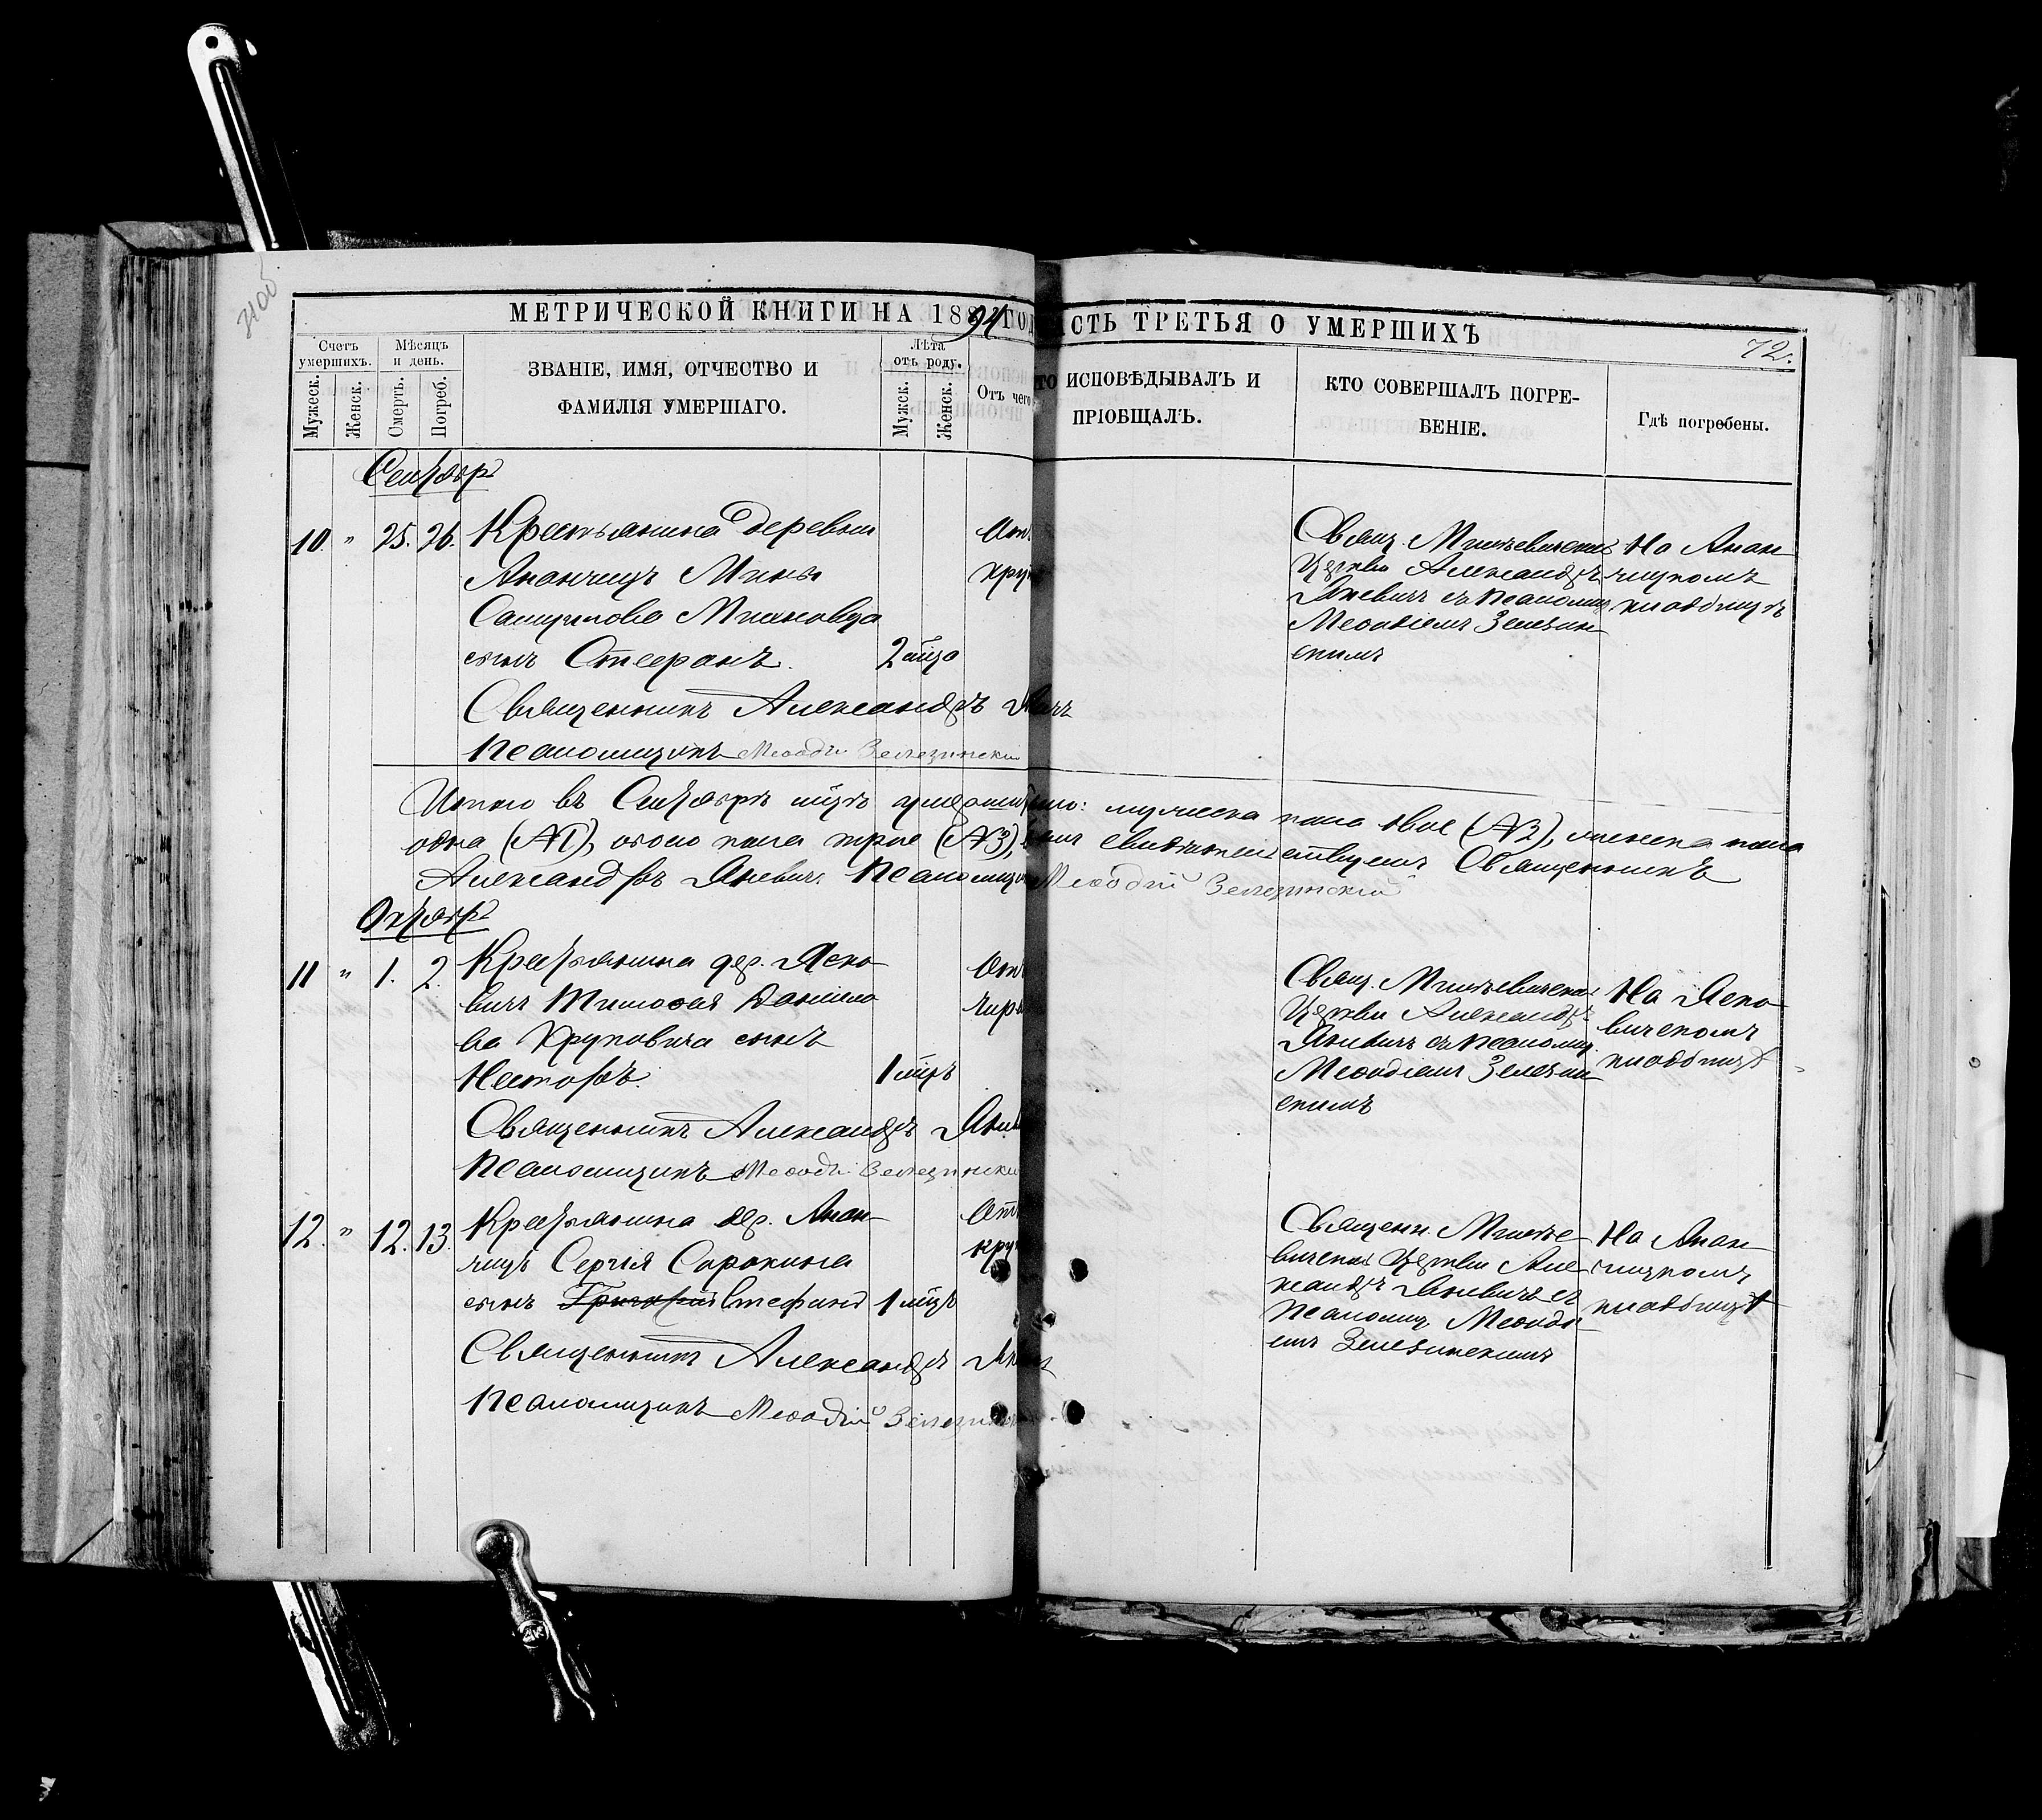 МЕТРИЧЕСКОЙ КНИГИ НА 1894 ГОД
СТЬ ТРЕТЬЯ О УМЕРШИХЪ
72.
Счетъ умершихъ.
Мужеск.
Женск.
Мѣсяцъ и день.
Смерть.
Погреб.
ЗВАНІЕ, ИМЯ, ОТЧЕСТВО И
ФАМИЛІЯ УМЕРШАГО.
Лѣта отъ роду.
Мужск.
Женск.
Отъ чего
ТО ИСПОВѢДЫВАЛЪ И
ПРІОБЩАЛЪ.
КТО СОВЕРШАЛЪ ПОГРЕ-
БЕНІЕ.
Гдѣ погребены.
10. " 25. 26. Крестьянина деревни
Ананчицъ Мины
сынъ Стефанъ. 2 мѣс
Священникъ Александръ
Псаломщикъ Меѳодій Зелезинскій
Свящ.
Церкви Александръ
Яневичъ съ псаломщ.
Меѳодіемъ Зелезин
скимъ
На Анан
чицкомъ
кладбищѣ
Итого въ Сентябрѣ мѣсяцѣ: мужеска пола двое (№ 2), женска пола
одна (№ 1), обоего пола трое (№ 3), свидѣтельствуемъ Священникъ
Александръ Яневичъ. Псаломщикъ Меѳодій Зелезинскій
11 " 1. 2. Крестьянина дер. Яско
вичъ Тимоѳея Данило
ва Круковича сынъ
Несторъ. 1 мѣс
Священникъ Александръ
Псаломщикъ Меѳодій Зелезинскі
Свящ.
Церкви Александръ
Яневичъ съ псаломщ.
Меѳодіемъ Зелезин
скимъ
На Яско
вичскомъ
кладбищѣ
12. " 12. 13. Крестьянина дер. Анан
чицъ Сергія Сорокина
сынъ Григорій Стефанъ 1 мѣс
Священникъ Александръ
Псаломщикъ Меѳодій
Священ.
Церкви Але
ксандръ Яневичъ съ
псаломщ. Меѳоді
емъ Зелезинскимъ
На Анан
чицкомъ
кладбищѣ